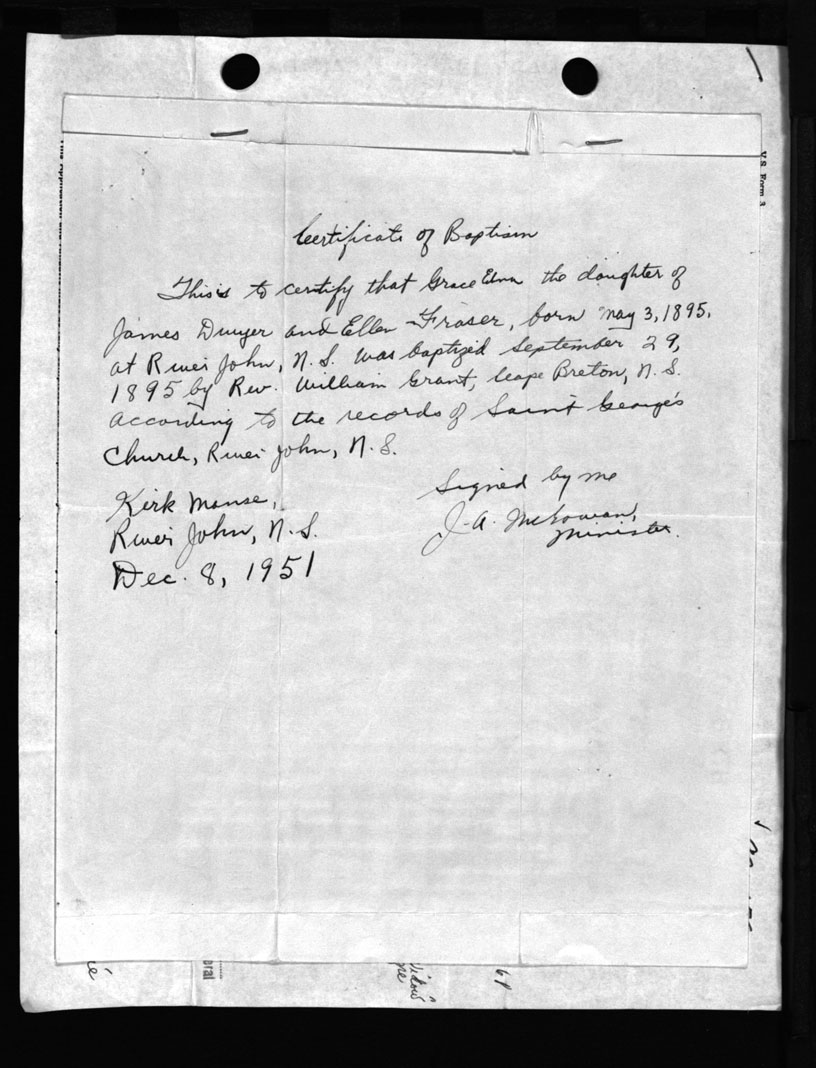 V.S. Form 3
Certificate of Baptism
This is to certify that Grace Edna the daughter of
James Dwyer and Ellen Fraser, born May 3, 1895,
at River John, N.S. was baptized September 29,
1895 by Rev. William Grant, Cape Breton, N.S.
According to the records of Saint George's
Church, River John, N.S.
Signed by me
J. A. McGowan,
Minister.
Kirk Manse,
River John, N.S.
Dec. 8, 1951